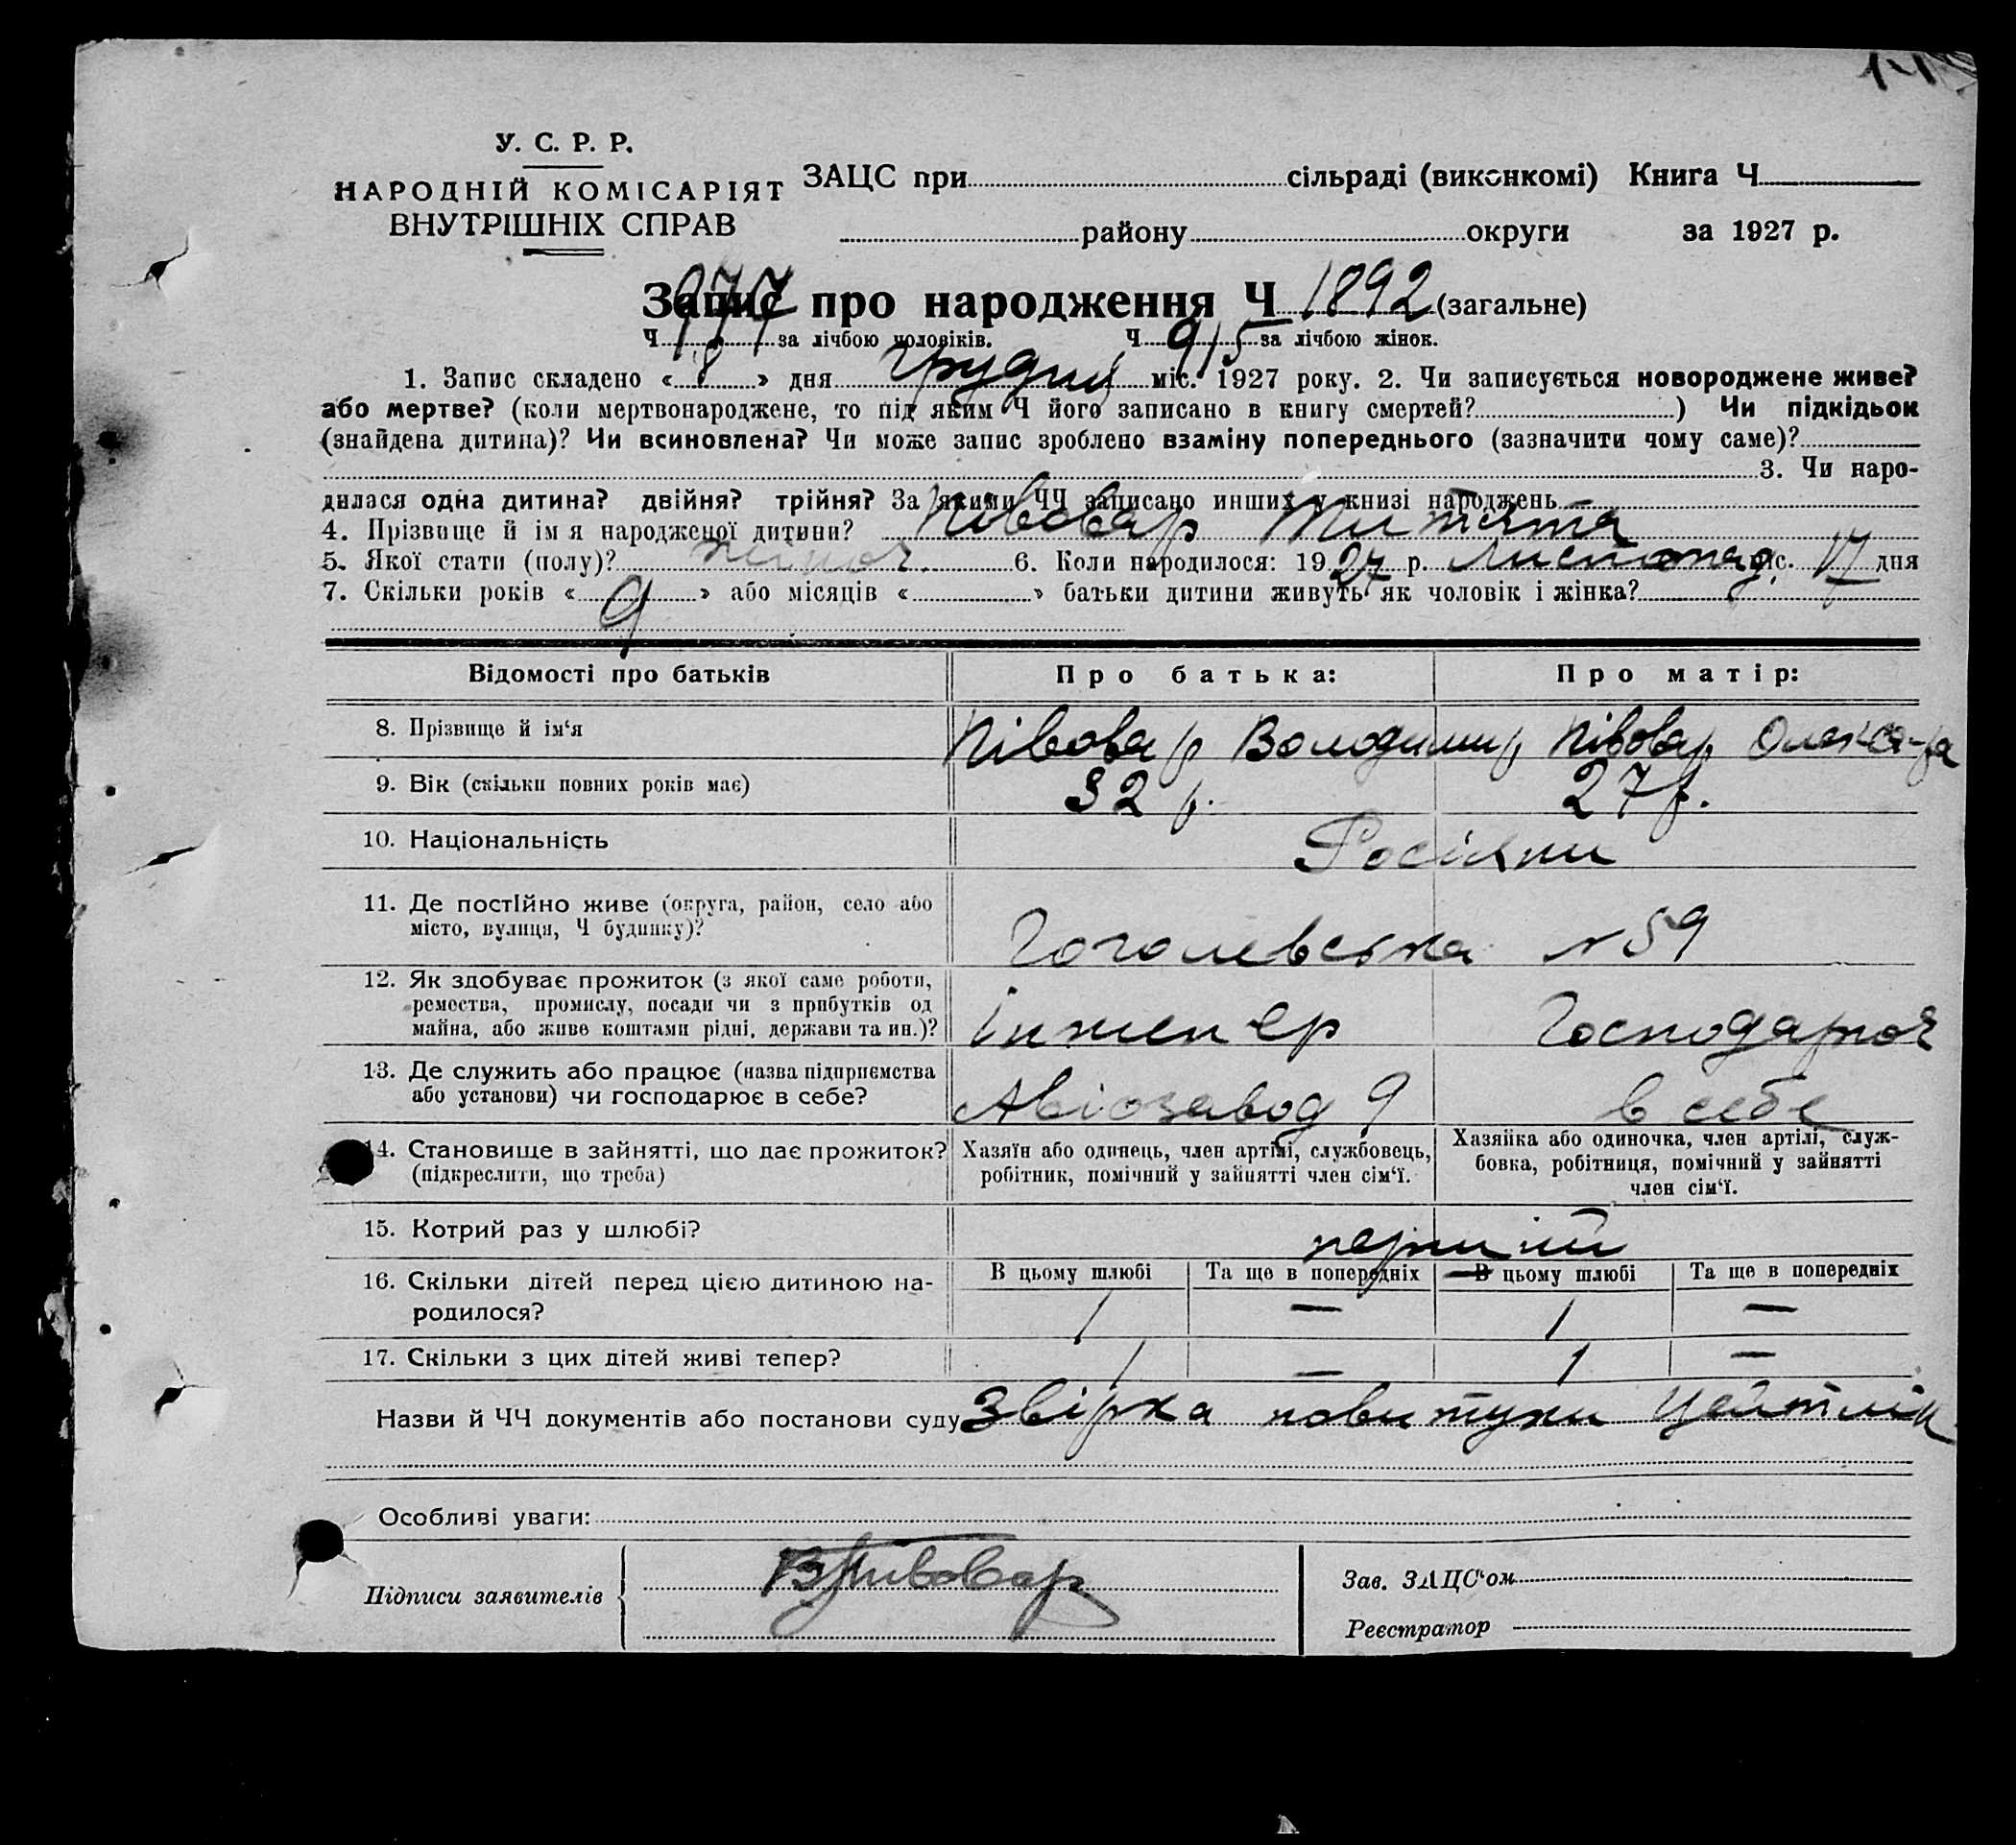 У. С. Р. Р.
НАРОДНІЙ КОМІСАРІЯТ
ВНУТРІШНІХ СПРАВ
ЗАЦС при сільраді (виконкомі) Книга Ч
району округи за 1927 р.
Запис про народження Ч 1892 (загальне)
Ч 977 за лічбою чоловіків. Ч 915 за лічбою жінок.
1. Запис складено « 8 » дня грудня міс. 1927 року. 2. Чи записується новороджене живе?
або мертве? (коли мертвонароджене, то під яким Ч його записано в книгу смертей? ) Чи підкідьок
(знайдена дитина)? Чи всиновлена? Чи може запис зроблено взаміну попереднього (зазначити чому саме)?
3. Чи наро-
дилася одна дитина? двійня? трійня? За якими ЧЧ записано инших у книзі народжень
4. Прізвище й ім я народженої дитини? Півовар
5. Якої стати (полу)? жіноч. 6. Коли народилося: 1927 р. Листопад міс. 17 дня
7. Скільки років « 9 » або місяців « » батьки дитини живуть як чоловік і жінка?
Відомості про батьків Про батька: Про матір:
8. Прізвище й ім‘я Півовар Володимир Півовар Олекса-ра
9. Вік (скільки повних років має) 32 р. 27 р.
10. Національність Росіяни
11. Де постійно живе (округа, район, село або
місто, вулиця, Ч будинку)? Гоголевська № 59
12. Як здобуває прожиток (з якої саме роботи,
ремества, промислу, посади чи з прибутків од
майна, або живе коштами рідні, держави та ин.)? Інженер Господарює
13. Де служить або працює (назва підприємства
або установи) чи господарює в себе? Авіозавод 9 в себе
14. Становище в зайнятті, що дає прожиток?
(підкреслити, що треба)
Хазяїн або одинець, член артілі, службовець,
робітник, помічний у зайнятті член сім‘ї.
Хазяйка або одиночка, член артілі, служ-
бовка, робітниця, помічний у зайнятті
член сім‘ї.
15. Котрий раз у шлюбі? перший
16. Скільки дітей перед цією дитиною на-
родилося?
В цьому шлюбі Та ще в попередніх В цьому шлюбі Та ще в попередніх
1 — 1 —
17. Скільки з цих дітей живі тепер? 1 — 1 —
Назви й ЧЧ документів або постанови суду Звірка повитухи Цейтлін
Особливі уваги:
Підписи заявителів ВПивовар
Зав. ЗАЦС‘ом
Реєстратор